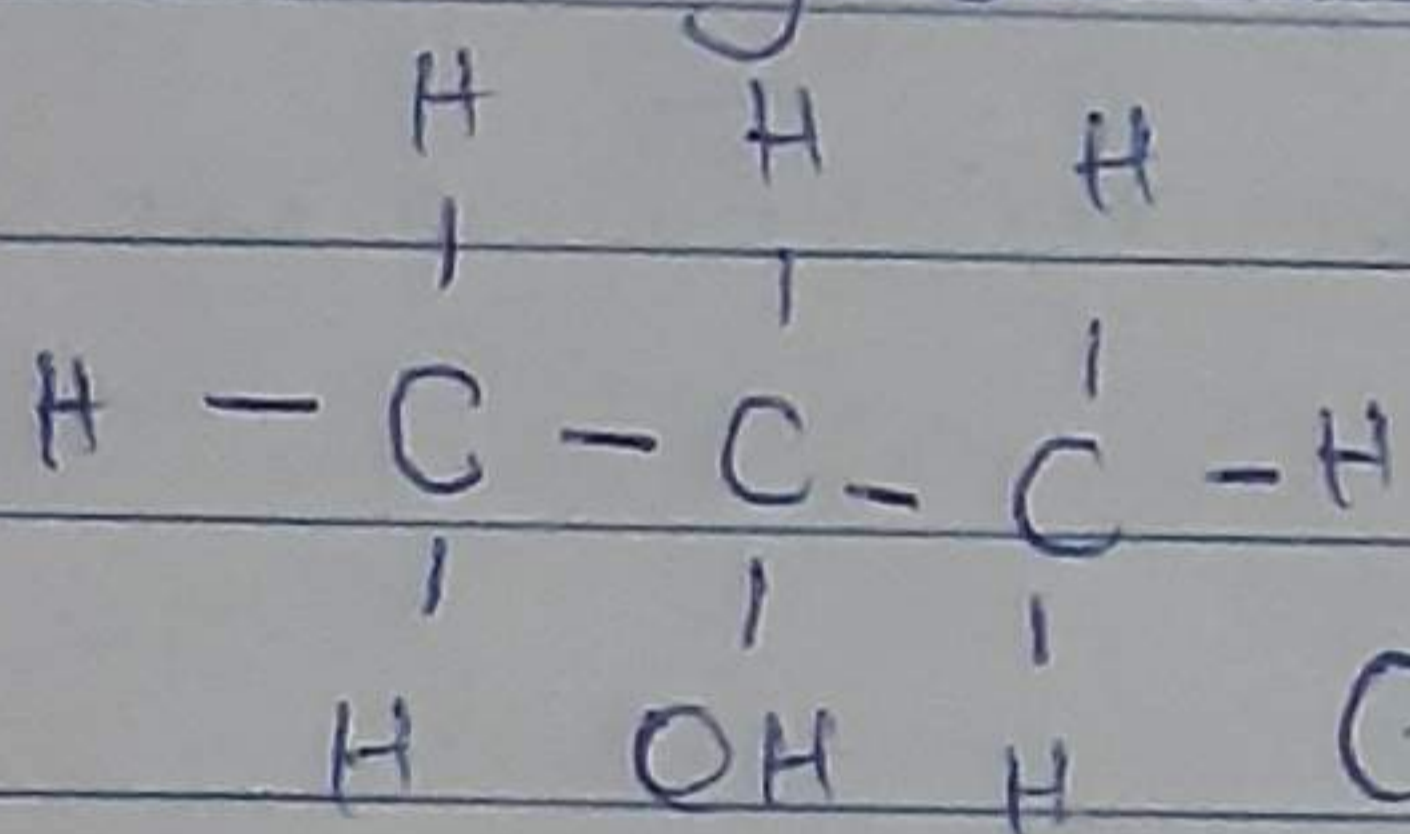 H H H
H - C - C - C - H
H OH H